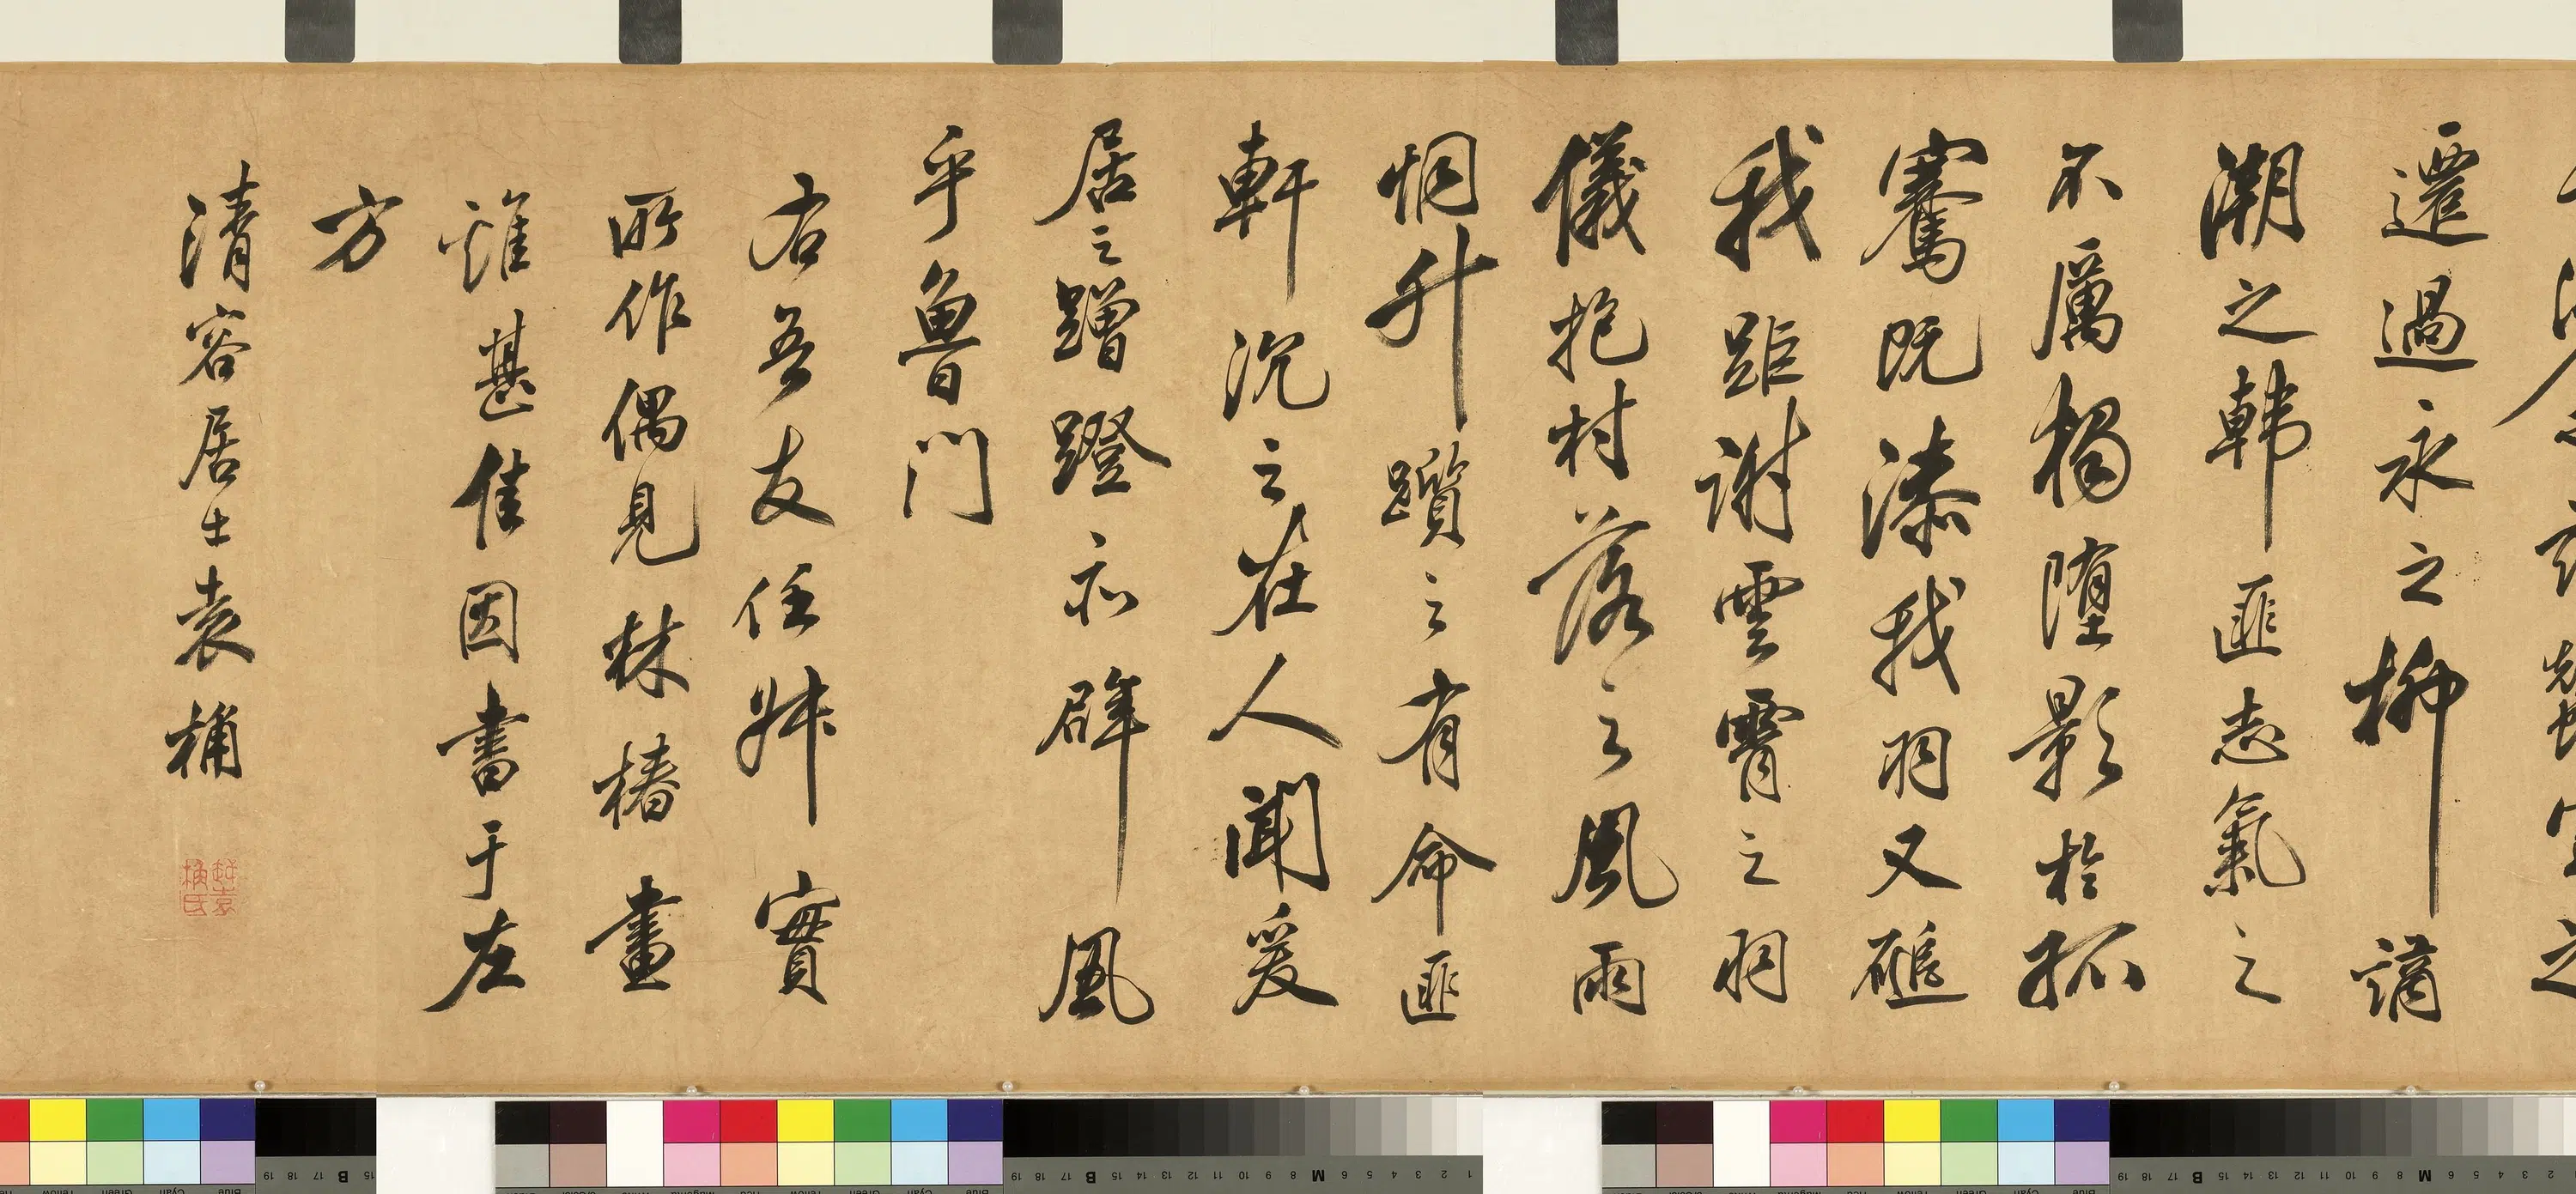 遷過永之柳謫
潮之韓匪志氣之
不厲獨墮影於孤
騫既漆我羽又磓
我距謝雲霄之羽
儀抱村落之風雨
烱升躓之有命匪
軒沉之在人聞爰
居之蹭蹬亦辟風
乎魯門
右吾友任叔實
所作偶見林椿畫
雖甚佳因書于左
方
清容居士袁桷